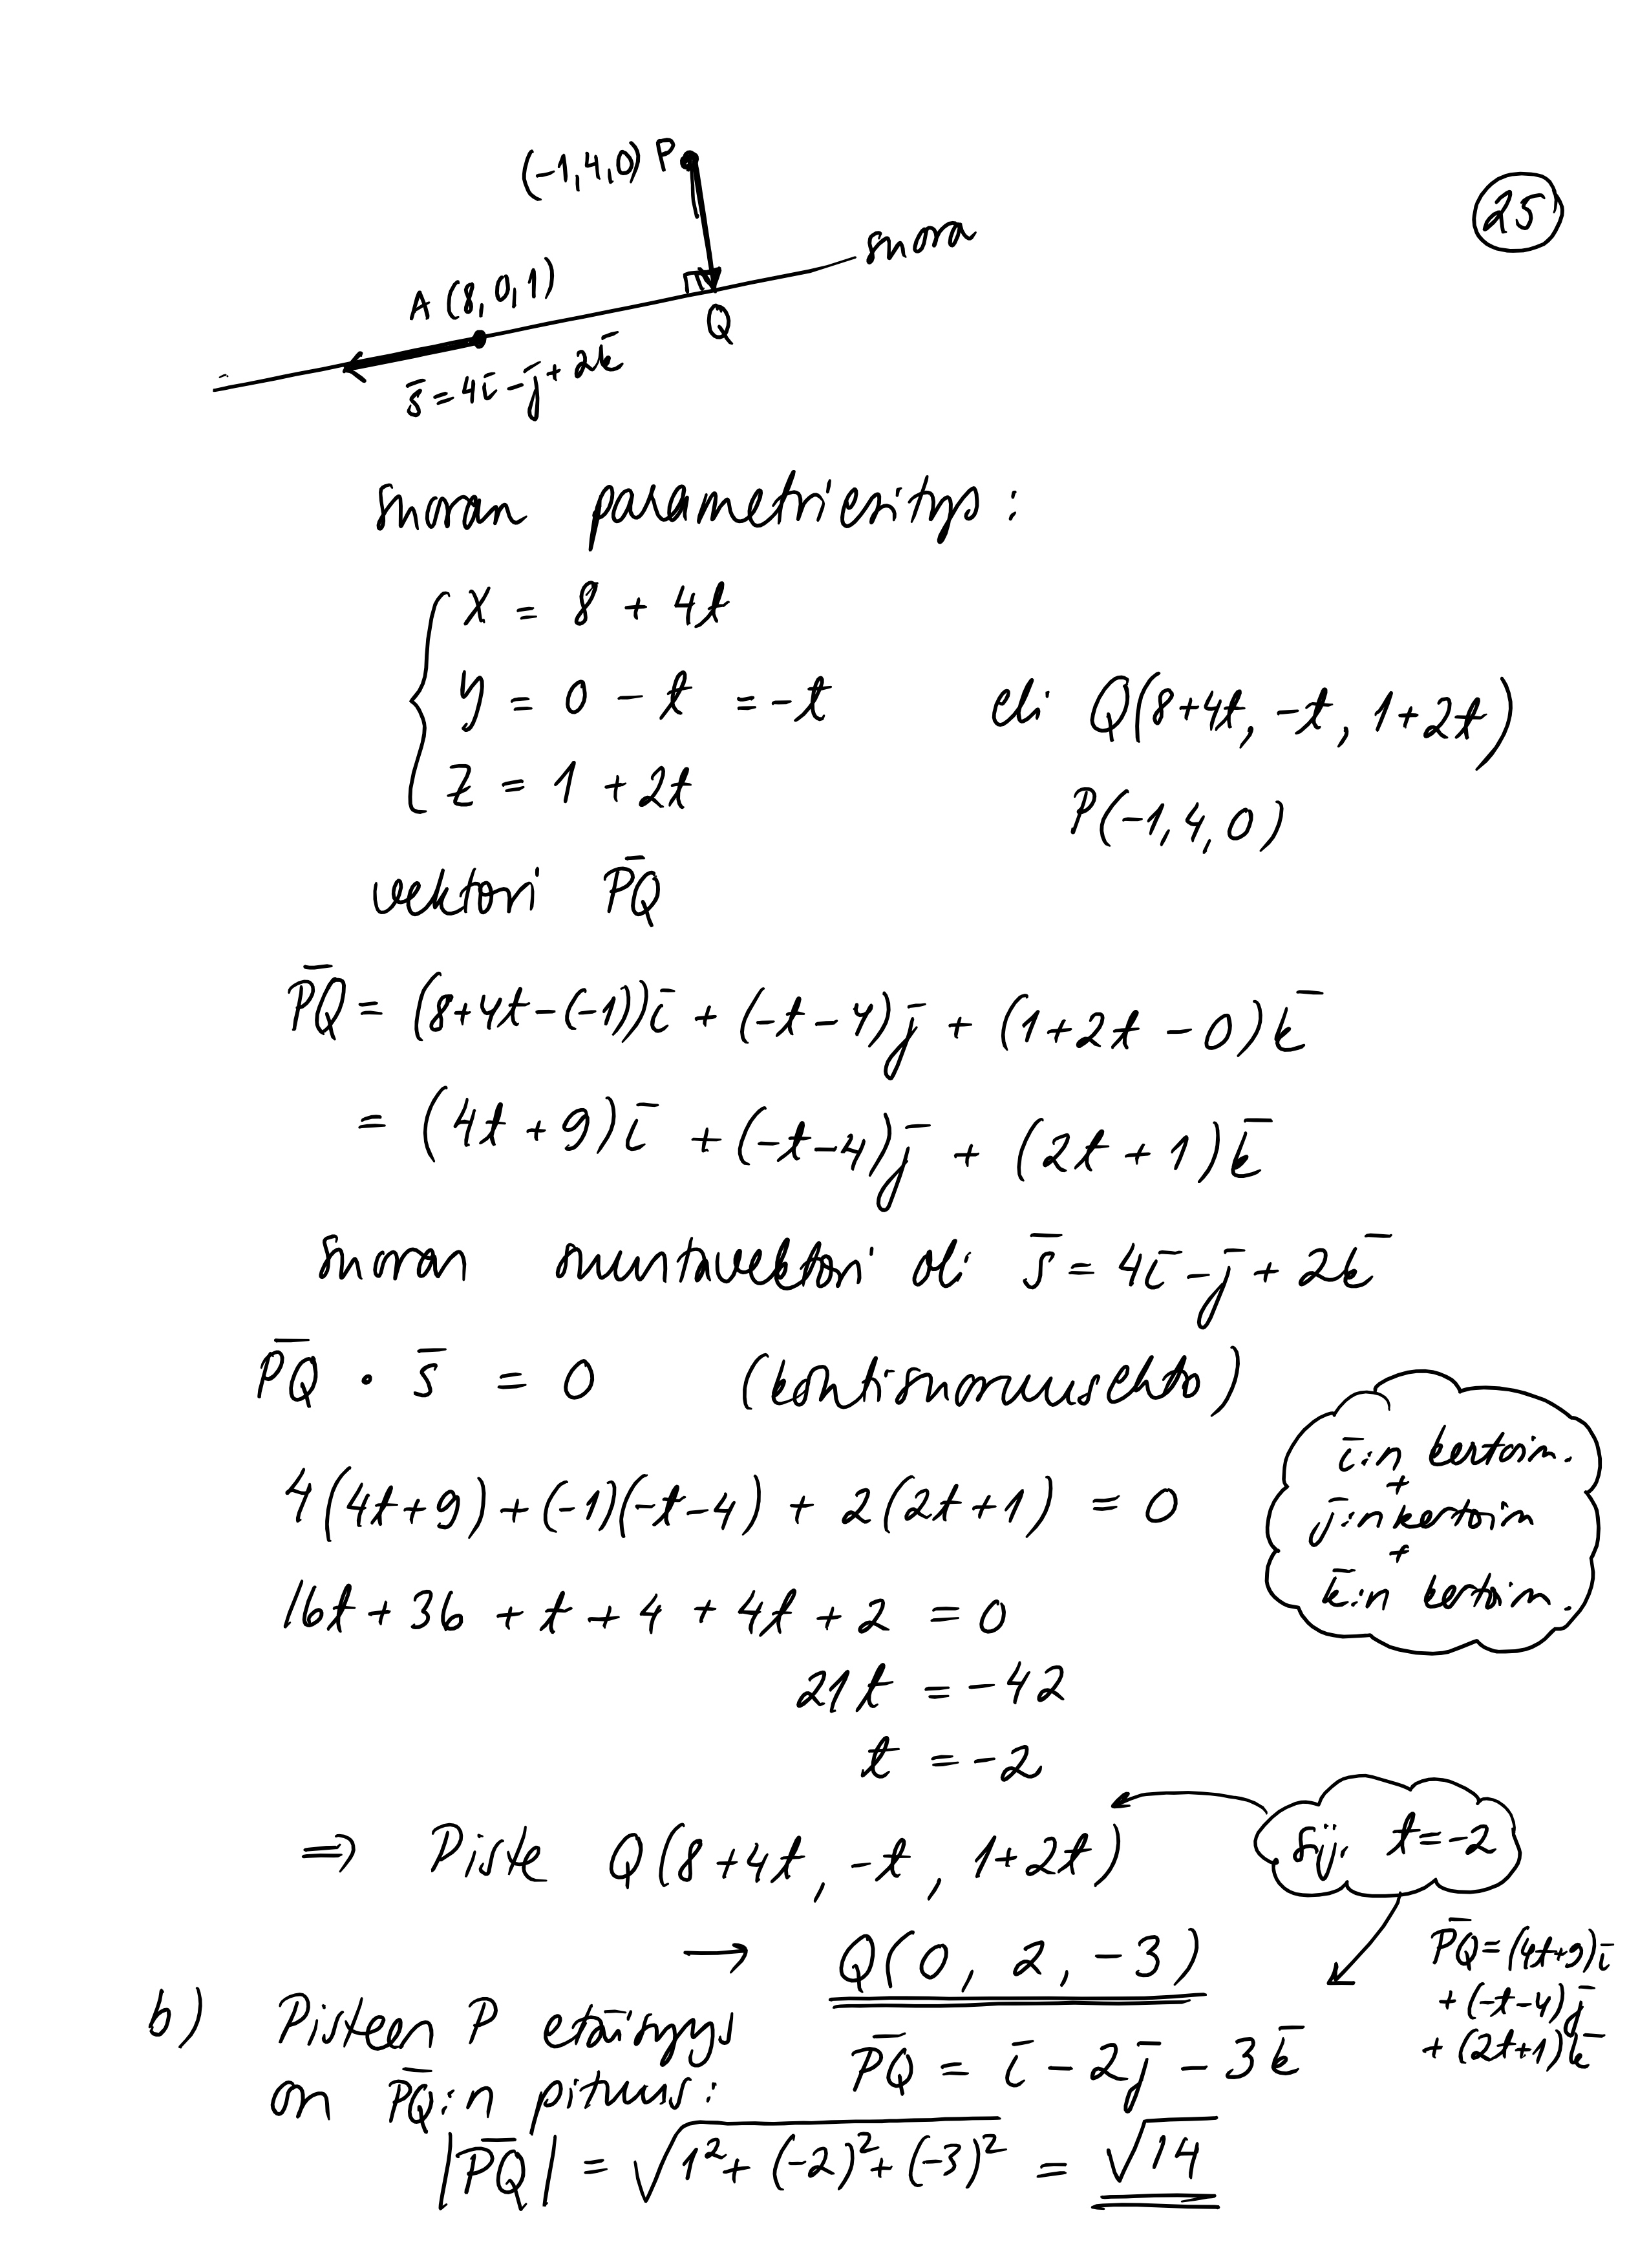 (-1,4,0) P
25
suora
A (8,0,1)
Q
s̄ = 4ī - j̄ + 2k̄
suoran parametriesitys :
x = 8 + 4t
y = 0 - t = -t
eli Q(8+4t, -t, 1+2t)
z = 1 + 2t
P(-1,4,0)
vektori P̄Q
P̄Q = (8+4t-(-1))ī + (-t-4)j̄ + (1+2t-0)k̄
= (4t+9)ī + (-t-4)j̄ + (2t+1)k̄
suoran suuntavektori oli s̄ = 4ī - j̄ + 2k̄
P̄Q · s̄ = 0 (kohtisuoruusehto)
ī:in kertoim.
+
j̄:in kertoim
+
k̄:in kertoim.
4(4t+9) + (-1)(-t-4) + 2(2t+1) = 0
16t + 36 + t + 4 + 4t + 2 = 0
21t = -42
t = -2
⇒ Piste Q(8+4t, -t, 1+2t)
sij. t=-2
→ Q(0, 2, -3)
P̄Q = (4t+9)ī
+ (-t-4)j̄
+ (2t+1)k̄
b) Pisteen P etäisyys
on P̄Q:n pituus:
P̄Q = ī - 2j̄ - 3k̄
|P̄Q| = √(1² + (-2)² + (-3)²) = √14